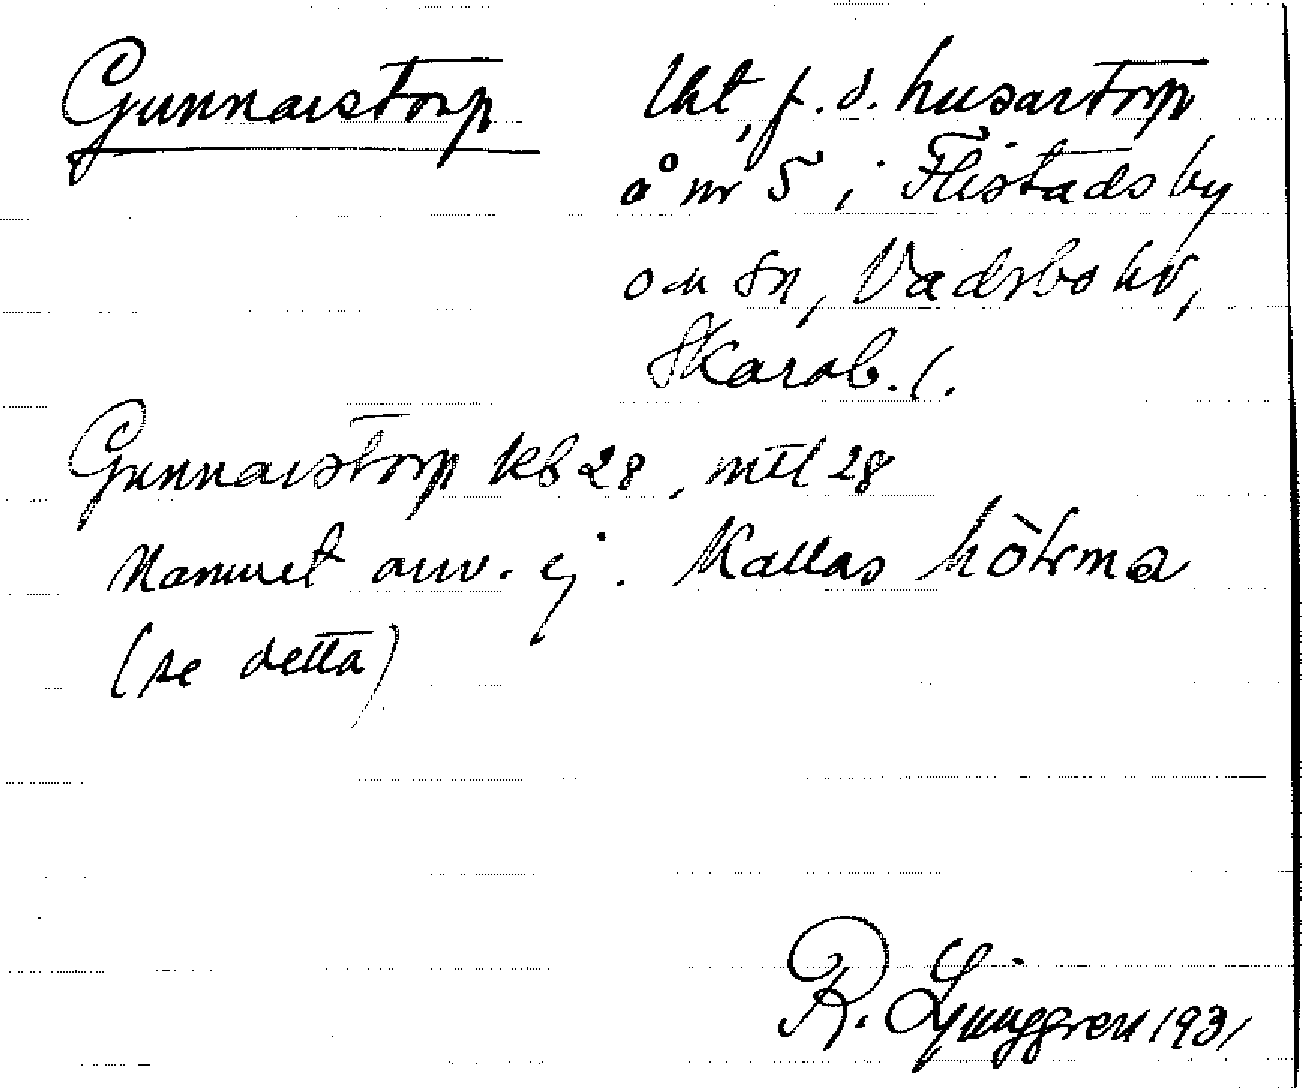 Gunnarstorp
lht, f. d. husartorp
å nr 5 i Flistads by
och sn, Vadsbo hd,
Skarab. l.
Gunnarstorp kb 28, mtl 28
Namnet anv. ej. Kallas
(se detta)
R. Ljunggren 1931